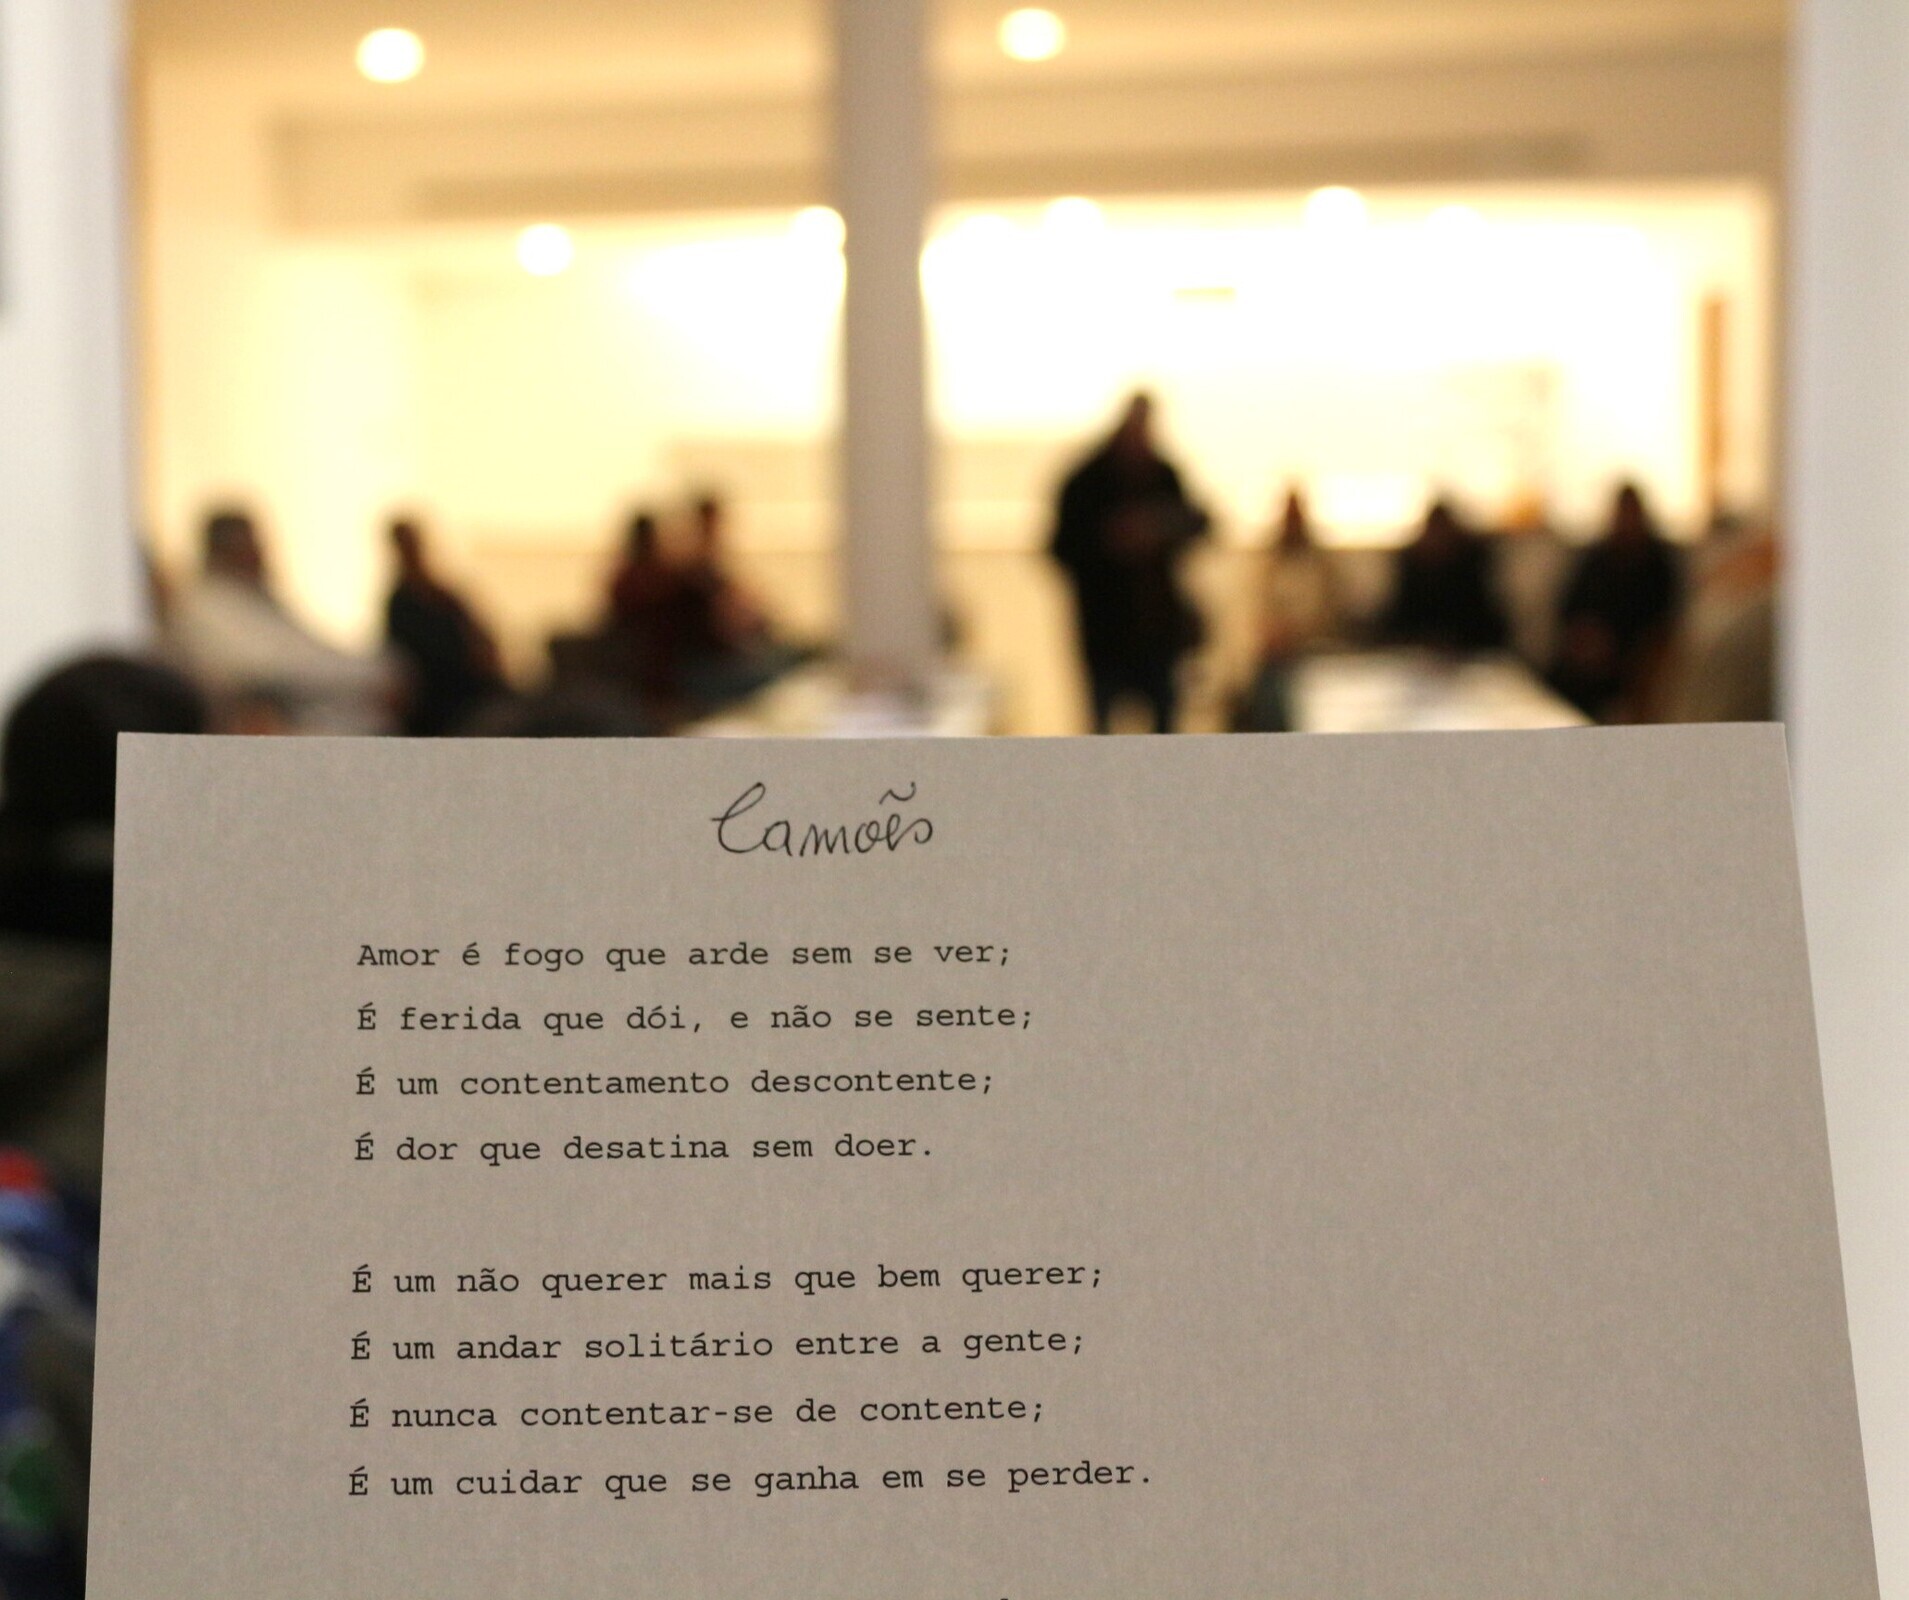 Camões
Amor é fogo que arde sem se ver;
É ferida que dói, e não se sente;
É um contentamento descontente;
É dor que desatina sem doer.
É um não querer mais que bem querer;
É um andar solitário entre a gente;
É nunca contentar-se de contente;
É um cuidar que se ganha em se perder.